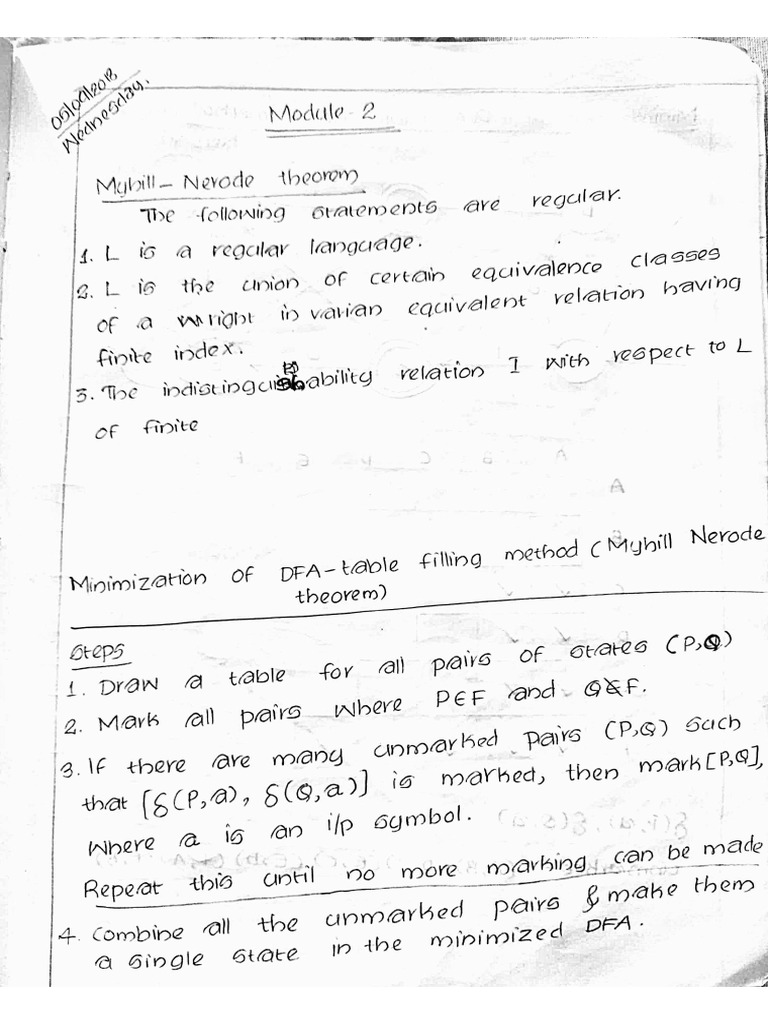 05/09/2018
Wednesday.
Module-2
Myhill-Nerode theorem
The following statements are regular.
1. L is a regular language.
2. L is the union of certain equivalence classes
of a right in varian equivalent relation having
finite index.
3. The indistinguishability relation I with respect to L
of finite
Minimization of DFA-table filling method (Myhill Nerode
theorem)
Steps
1. Draw a table for all pairs of states (P,Q)
2. Mark all pairs where P∈F and Q∉F.
3. If there are many unmarked pairs (P,Q) such
that [δ(P,a), δ(Q,a)] is marked, then mark [P,Q],
where a is an i/p symbol.
Repeat this until no more marking can be made
4. Combine all the unmarked pairs & make them
a single state in the minimized DFA.